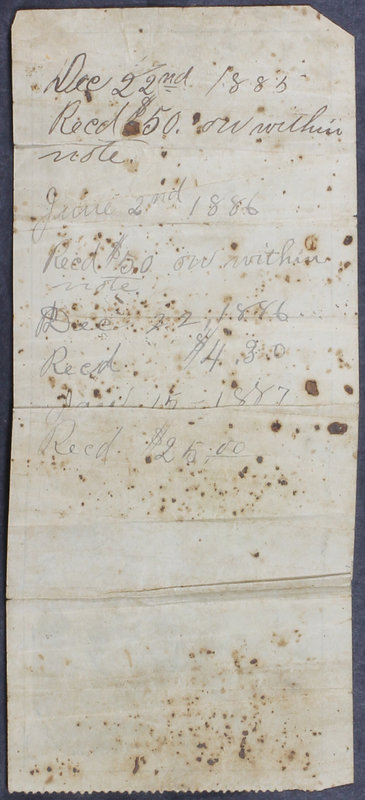 Dec 22nd 1885
Recd $50. on within
note.
June 2nd 1886
Recd $50 on within
note
Dec 22, 1886
Recd $4.30
Jany 15 - 1887
Recd. $25.00